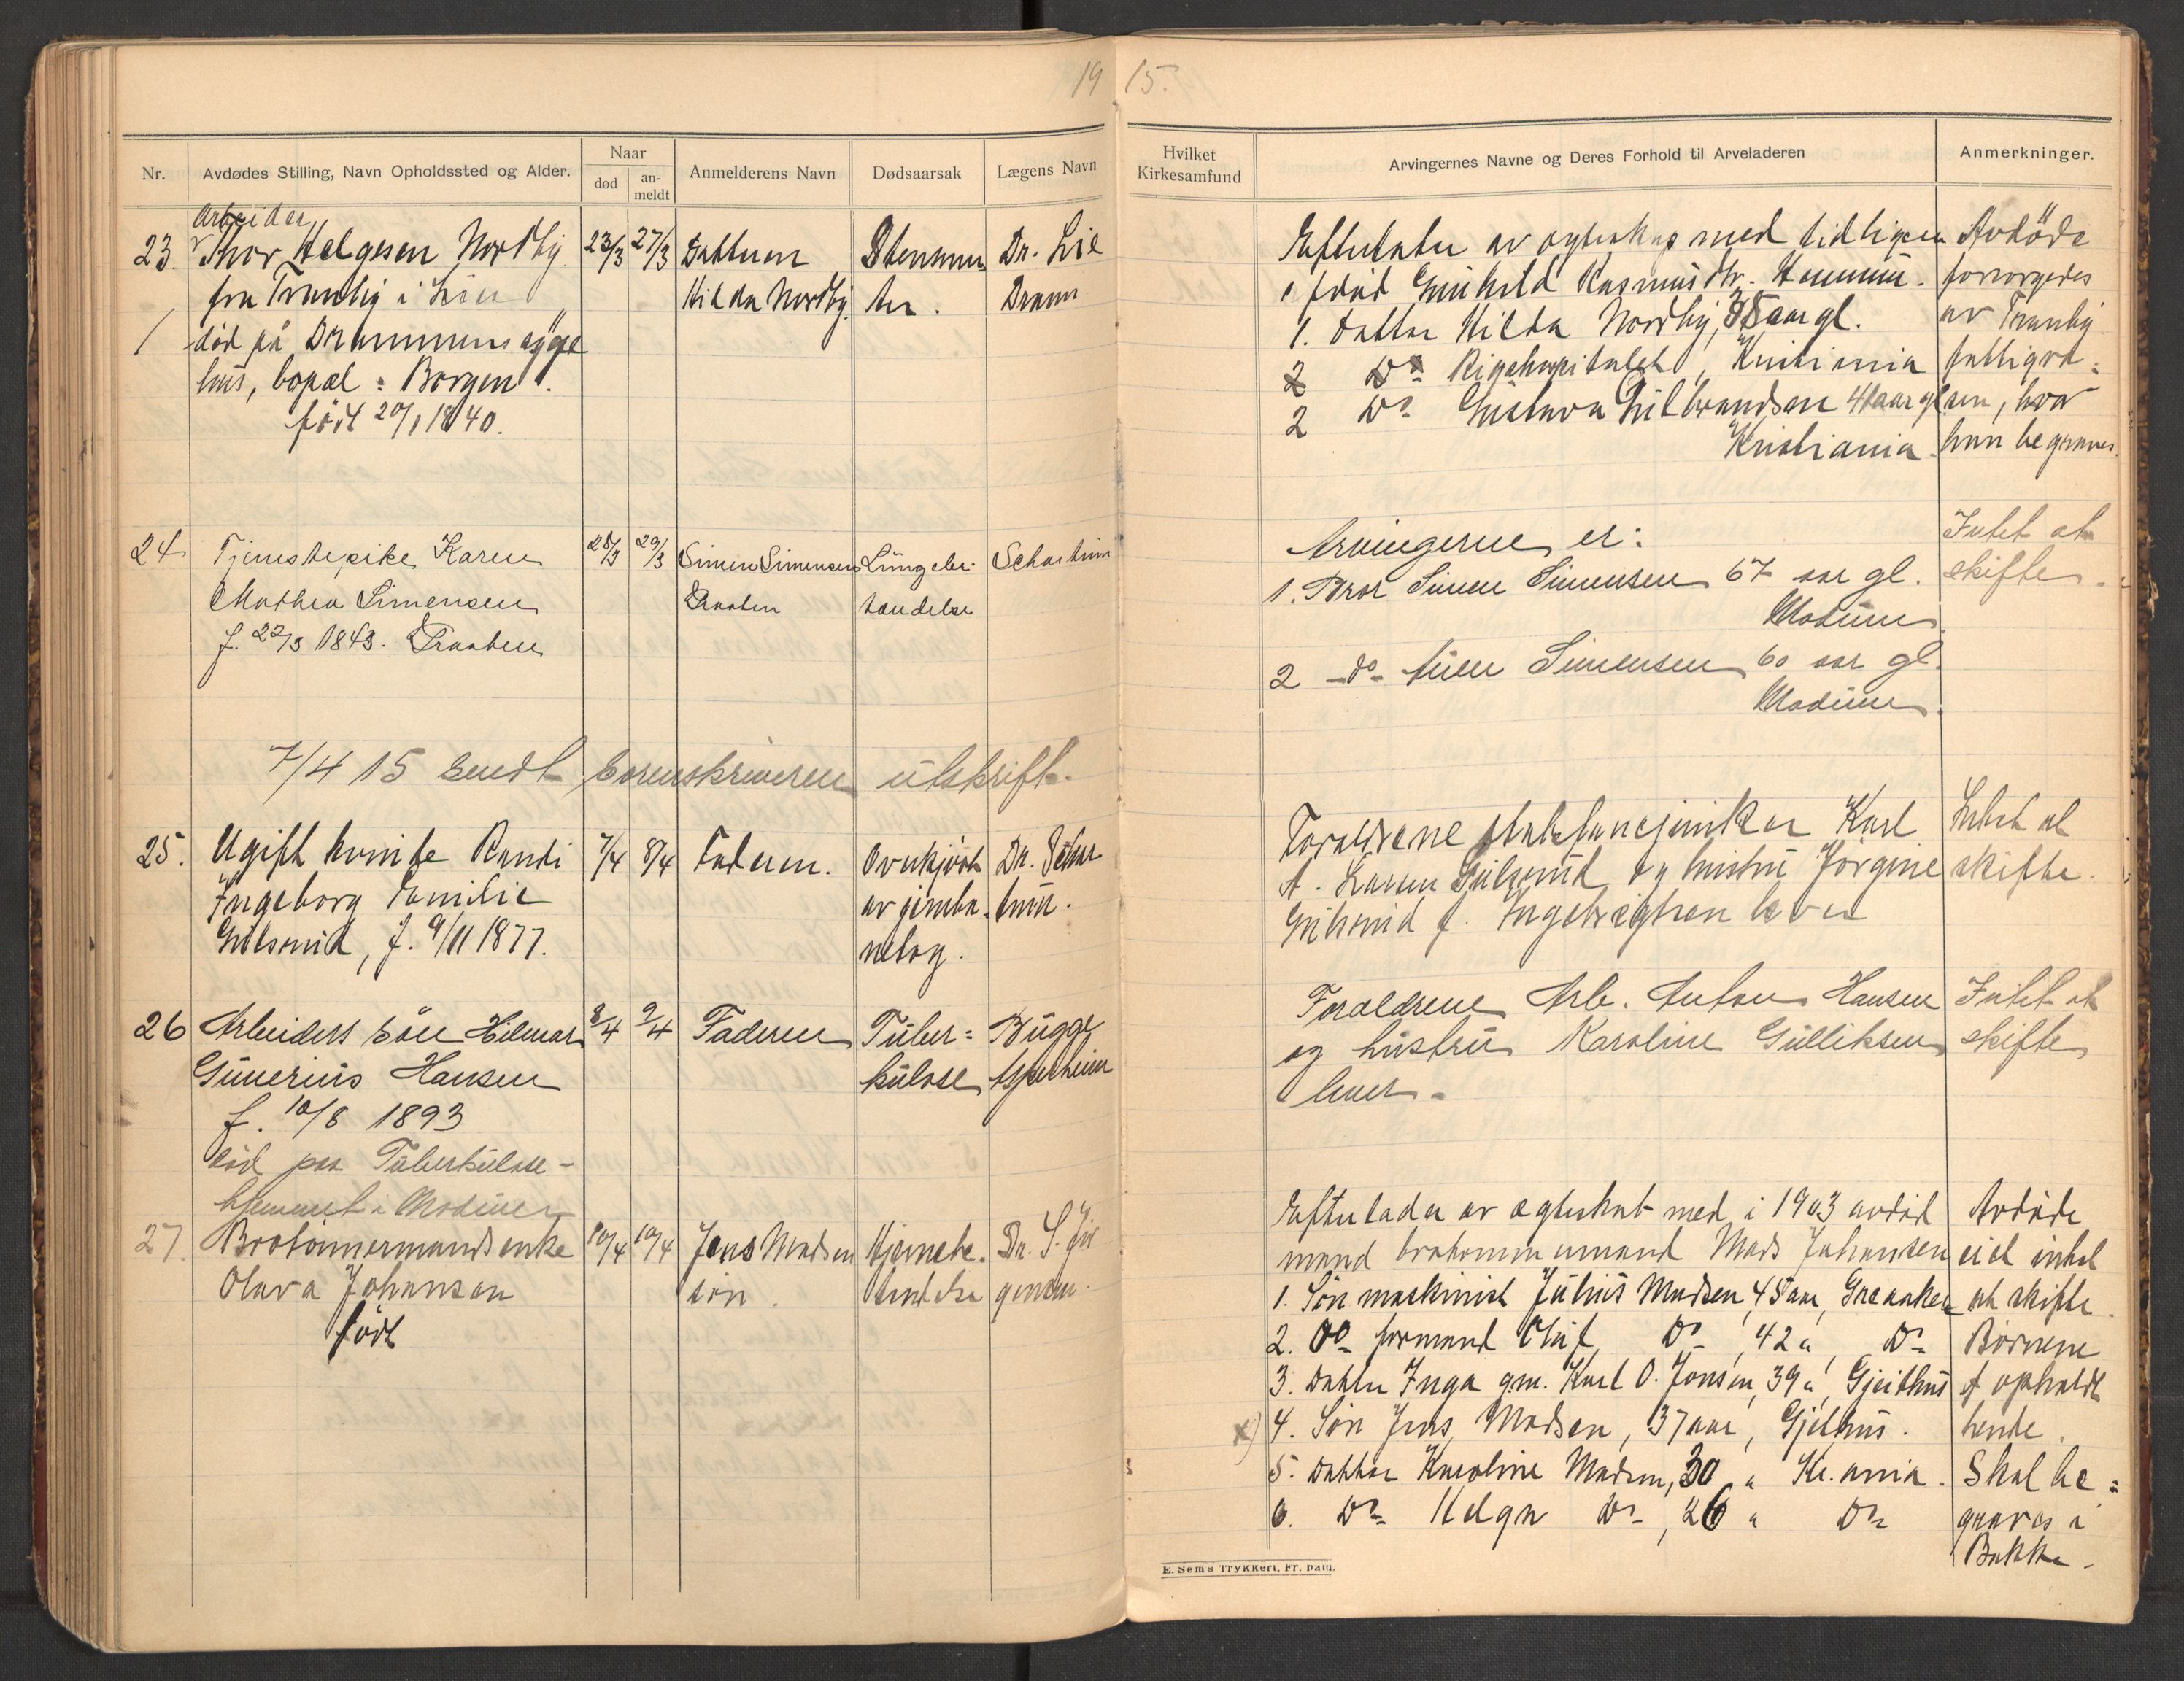 19 15.
Nr.
Avdødes Stilling, Navn Opholdssted og Alder.
Naar
død
an-
meldt
Anmelderens Navn
Dødsaarsak
Lægens Navn
Hvilket
Kirkesamfund
Arvingernes Navne og Deres Forhold til Arveladeren
Anmerkninger.
Arbeider
23. Thor Helgesen Nordby 23/3 27/3 Datteren Dr. Lie
fra Tranby i Lier Hilda Nordby. Dramn
død på Drammens syge
hus, bopæl: Borgen.
født 20/1 1840.
Efterlater av egteskap med tidligere
død Gunhild Rasmusdtr.
1. Datter Hilda Nordby, 35 aar gl.
2 Do Rigshospitalet, Kristiania
2 Do Gustava Gulbrandsen 41 aar gl
Kristiania.
Avdöde
forsørgedes
av Tranby
fattigvæ-
sen, hvor
han begraves.
24 Tjenestepike Karen 28/3 29/3 Simen Simensen Lungebe- Scharthum
Mathea Simensen Braaten tændelse
f. 22/3 1843. Braaten
Arvingerne er:
1. Bror Simen Simensen 67 aar gl.
Modum.
2 -do- Simensen 60 aar gl.
Modum.
Intet at
skifte.
7/4 15 sendt sorenskriveren utskrift.
25. Ugift kvinde Randi 7/4 8/4 Faderen. Overkjört Dr. Schar
Ingeborg Familie av jernba- tum.
Gulsrud, f. 9/11 1877. netog.
Forældrene Karl
A. Larsen Gulsrud og hustru Jørgine
Gulsrud f. Ingebrigtsen lever
Intet at
skifte.
26 Arbeiders sön Hilmar 8/4 9/4 Faderen Tuber= Bugge
Gunerius Hansen kulose Asperheim
f. 10/8 1893
död paa Tuberkulose-
hjemmet i Modum
Forældrene Arb. Anton Hansen
og hustru Karoline Gulliksen
lever.
Intet at
skifte
27. Brotømmermandsenke 10/4 10/4 Jens Madsen Hjernebe- Dr. S. Jör
Olava Johansen søn. tændelse gensen.
født
Efterlader av egteskab med i 1903 avdöd
mand brotømmermand Mads Johansen
1. Søn maskinist Julius Madsen 45 aar, Greaaker
2. Do formand Oluf Do, 42 " Do
3. Datter Inga gm. Karl O. Jonsen, 39 " Gjeithus
x) 4. Søn Jens Madsen, 37 aar, Gjethus.
5. Datter Karoline Madsen, 30 " Kr.ania.
6. Do Helga Do, 26 " Do
Avdøde
eied intet
at skifte.
Børnene
opholdt
hende.
Skal be=
graves i
Bakke.
E. Sem's Trykkeri, Fr.hald.